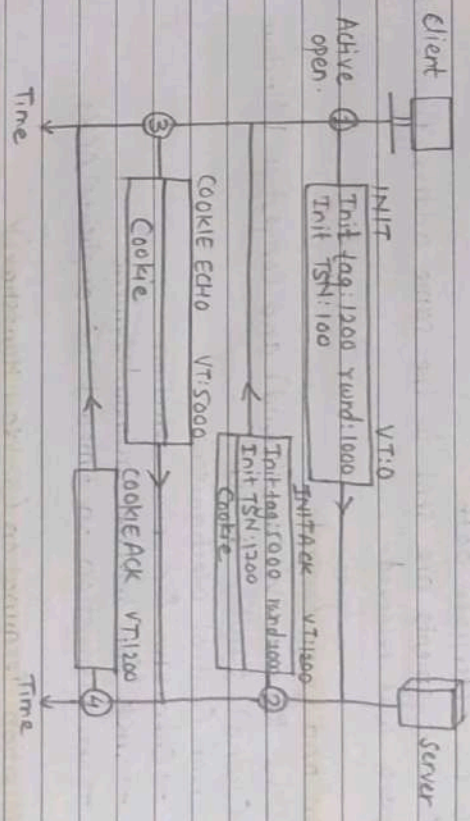 Client
Server
INIT VT:0
Active
open.
①
Init tag:1200 rwnd:1000
Init TSN:100
INITACK VT:1200
②
Init tag:5000
Init TSN:1200
Cookie
COOKIE ECHO VT:5000
③
Cookie
COOKIE ACK VT:1200
④
Time
Time